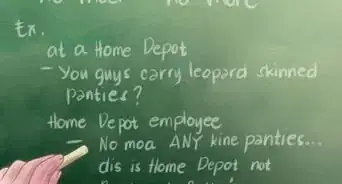 Ex.
at a Home Depot
- You guys carry leopard skinned
panties?
Home Depot employee
- No moa ANY kine panties...
dis is Home Depot not